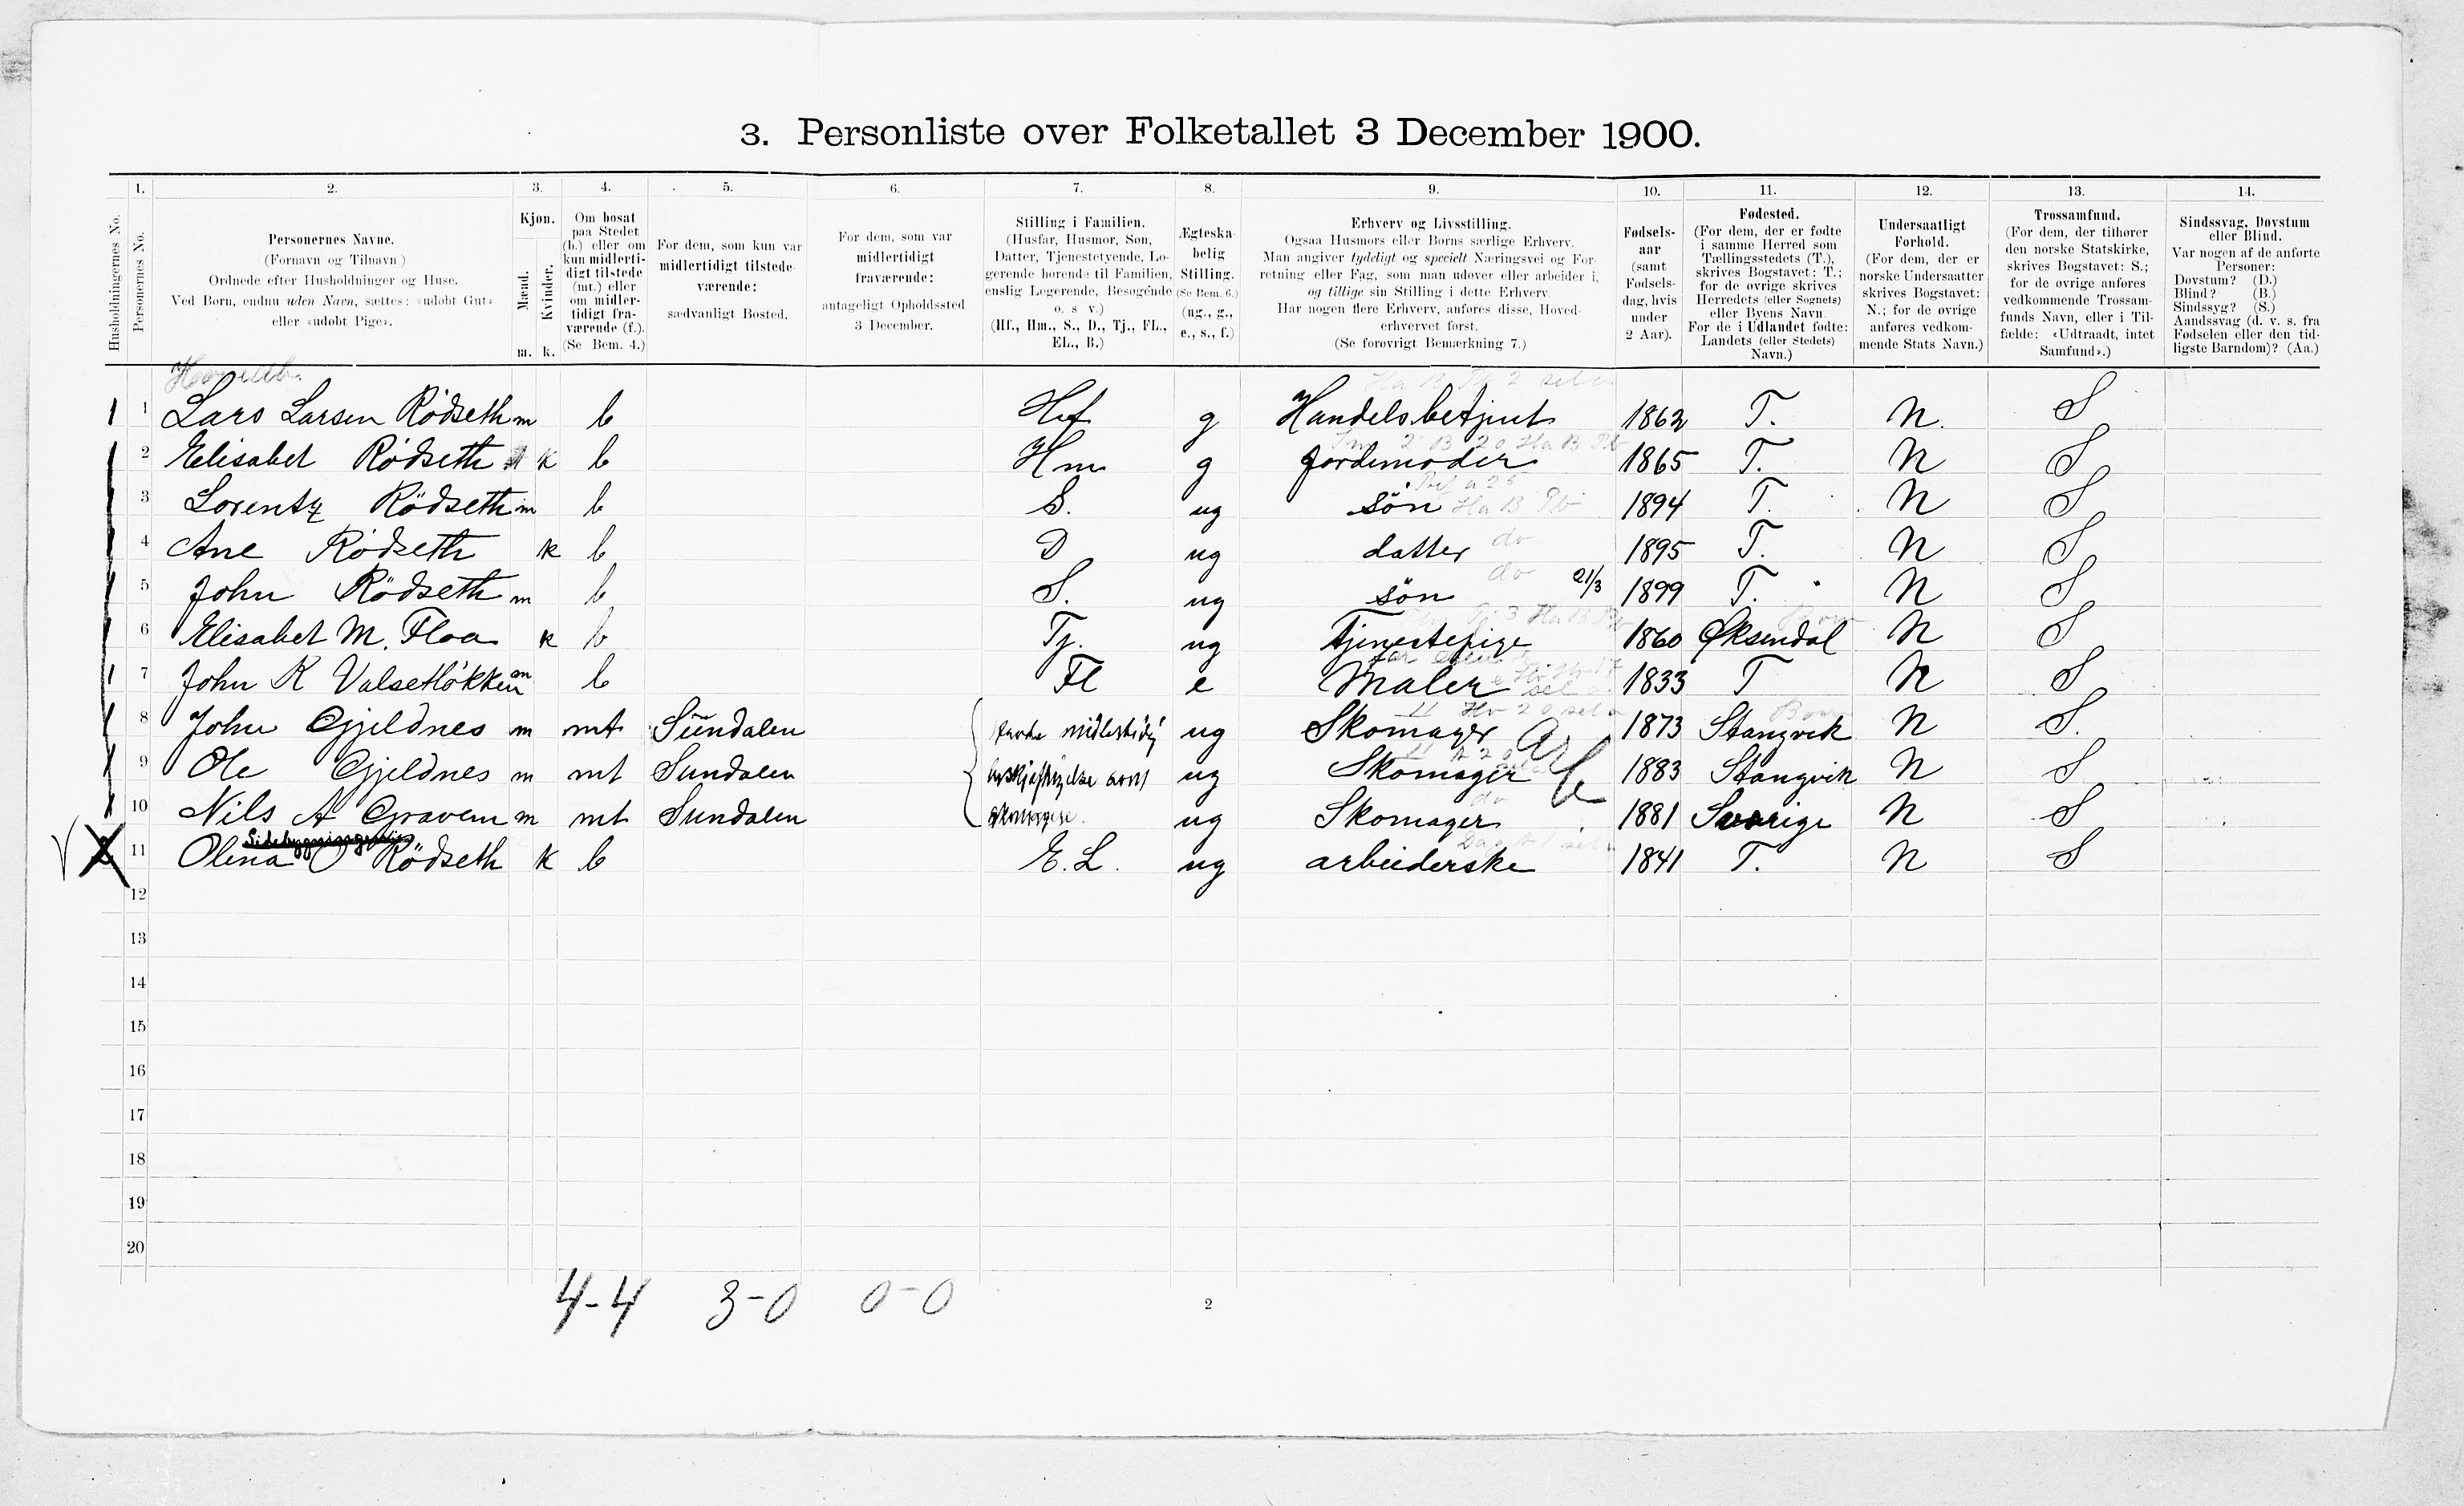 3. Personliste over Folketallet 3 December 1900.
1. 2. 3. 4. 5. 6. 7. 8. 9. 10. 11. 12. 13. 14.
Husholdningernes No.
Personernes No.
Personernes Navne.
(Fornavn og Tilnavn)
Ordnede efter Husholdninger og Huse.
Ved Børn, endnu uden Navn, sættes: «udøbt Gut»
eller «udøbt Pige».
Kjøn.
Mænd.
Kvinder.
m. k.
Om bosat
paa Stedet
(b.) eller om
kun midlerti-
digt tilstede
(mt.) eller
om midler-
tidigt fra-
værende (f.).
(Se Bem. 4.)
For dem, som kun var
midlertidigt tilstede-
værende:
sædvanligt Bosted.
For dem, som var
midlertidigt
fraværende:
antageligt Opholdssted
3 December.
Stilling i Familien.
(Husfar, Husmor, Søn,
Datter, Tjenestetyende, Lo-
gerende hørende til Familien,
enslig Logerende, Besøgende
o. s v.)
(Hf., Hm., S., D., Tj., FL.,
EL., B.)
Ægteska-
belig
Stilling.
(Se Bem. 6.)
(ug., g.,
e., s., f.)
Erhverv og Livsstilling.
Ogsaa Husmors eller Børns særlige Erhverv.
Man angiver tydeligt og specielt Næringsvei og For-
retning eller Fag, som man udøver eller arbeider i,
og tillige sin Stilling i dette Erhverv.
Har nogen flere Erhverv, anføres disse, Hoved-
erhvervet først.
(Se forøvrigt Bemærkning 7.)
Fødsels-
aar
(samt
Fødsels-
dag, hvis
under
2 Aar).
Fødested.
(For dem, der er fødte
i samme Herred som
Tællingsstedets (T.),
skrives Bogstavet: T.;
for de øvrige skrives
Herredets (eller Sognets)
eller Byens Navn
For de i Udlandet fødte:
Landets (eller Stedets)
Navn.)
Undersaatligt
Forhold.
(For dem, der er
norske Undersaatter
skrives Bogstavet:
N.; for de øvrige
anføres vedkom-
mende Stats Navn.)
Trossamfund.
(For dem, der tilhører
den norske Statskirke,
skrives Bogstavet: S.;
for de øvrige anføres
vedkommende Trossam-
funds Navn, eller i Til-
fælde: «Udtraadt, intet
Samfund».)
Sindssvag, Døvstum
eller Blind.
Var nogen af de anførte
Personer:
Døvstum? (D.)
Blind? (B.)
Sindssyg? (S.)
Aandssvag (d. v. s. fra
Fødselen eller den tid-
ligste Barndom)? (Aa.)
1 1 Lars Larsen Rödseth m b Hf g Handelsbetjent 1862 T. N. S
2 Elisabet Rödseth k b Hm g Jordemoder 1865 T. N S
3 Lorentz Rödseth m b S. ug søn 1894 T. N S
4 Ane Rödseth k b D ug datter do 1895 T. N S
5 John Rödseth m b S. ug søn do 21/3 1899 T. N S
6 Elisabet M. Floa k b Tj. ug Tjenestepige 1860 Øksendal N S
7 John R Valsetløkken m b Fl e Maler 1833 T N S
8 John Gjeldnes m mt Sundalen midlertidig ug Skomager 1873 Stangvik N S.
9 Ole Gjeldnes m mt Sundalen beskjæftigelse som ug Skomager 1883 Stangvik N S
10 Nils A Gravem m mt Sundalen skomagere. ug Skomager do 1881 Sverige N S
Sidebygningen
11 Olena O Rödseth k b E.L. ug arbeiderske 1841 T. N S
12
13
14
15
16
17
18
19
20
4-4 3-0 0-0
2